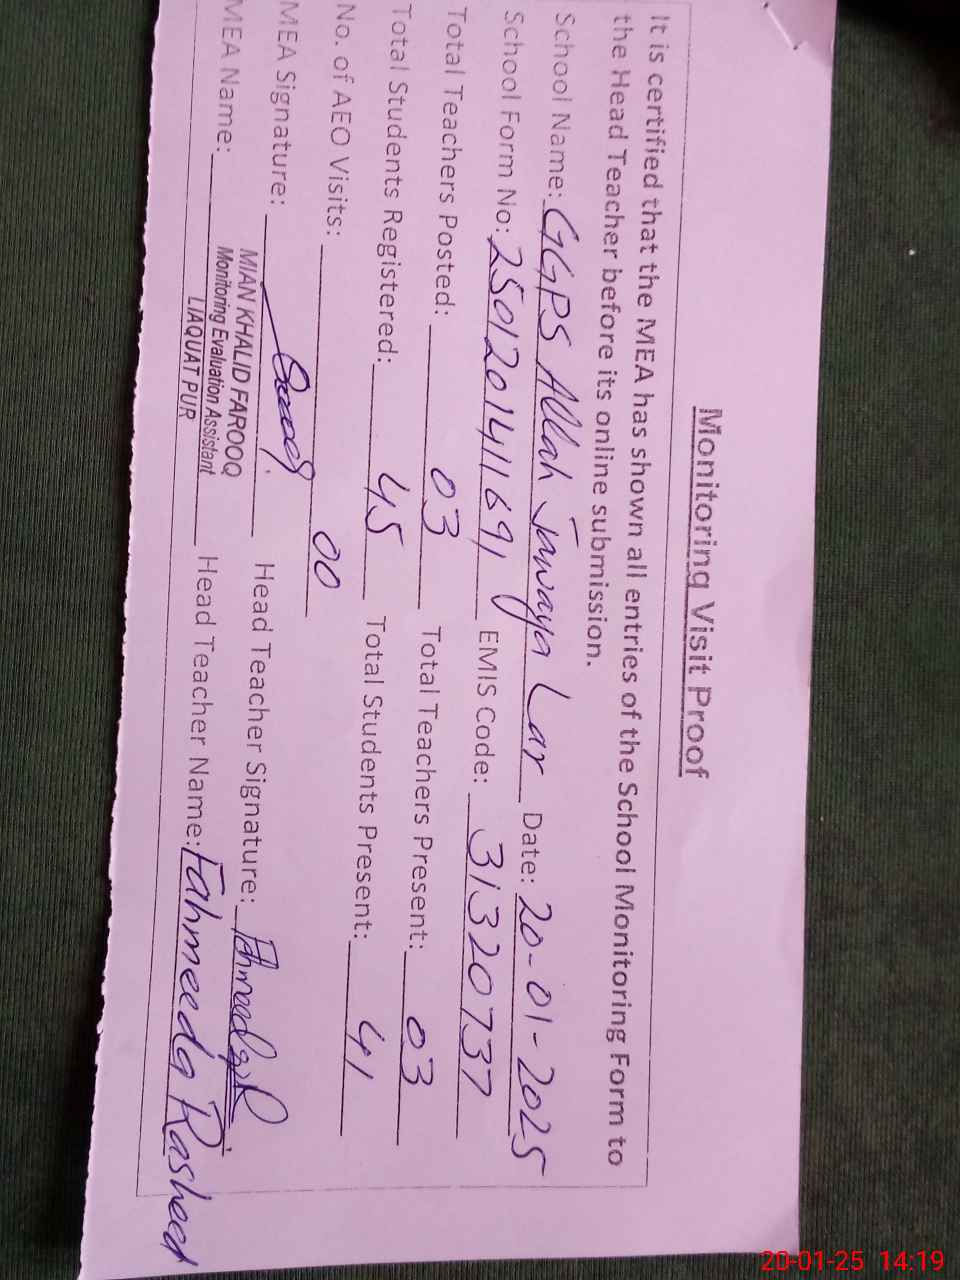 Monitoring Visit Proof
It is certified that the MEA has shown all entries of the School Monitoring Form to
the Head Teacher before its online submission.
School Name: GGPS Allah Jawaya Lar Date: 20-01-2025
School Form No: 2501201411691 EMIS Code: 31320737
Total Teachers Posted: 03 Total Teachers Present: 03
Total Students Registered: 45 Total Students Present: 41
No. of AEO Visits: 00
MEA Signature: Head Teacher Signature: Fahmeeda R
MEA Name: MIAN KHALID FAROOQ
Monitoring Evaluation Assistant
LIAQUAT PUR
Head Teacher Name: Fahmeeda Rasheed
20-01-25 14:19